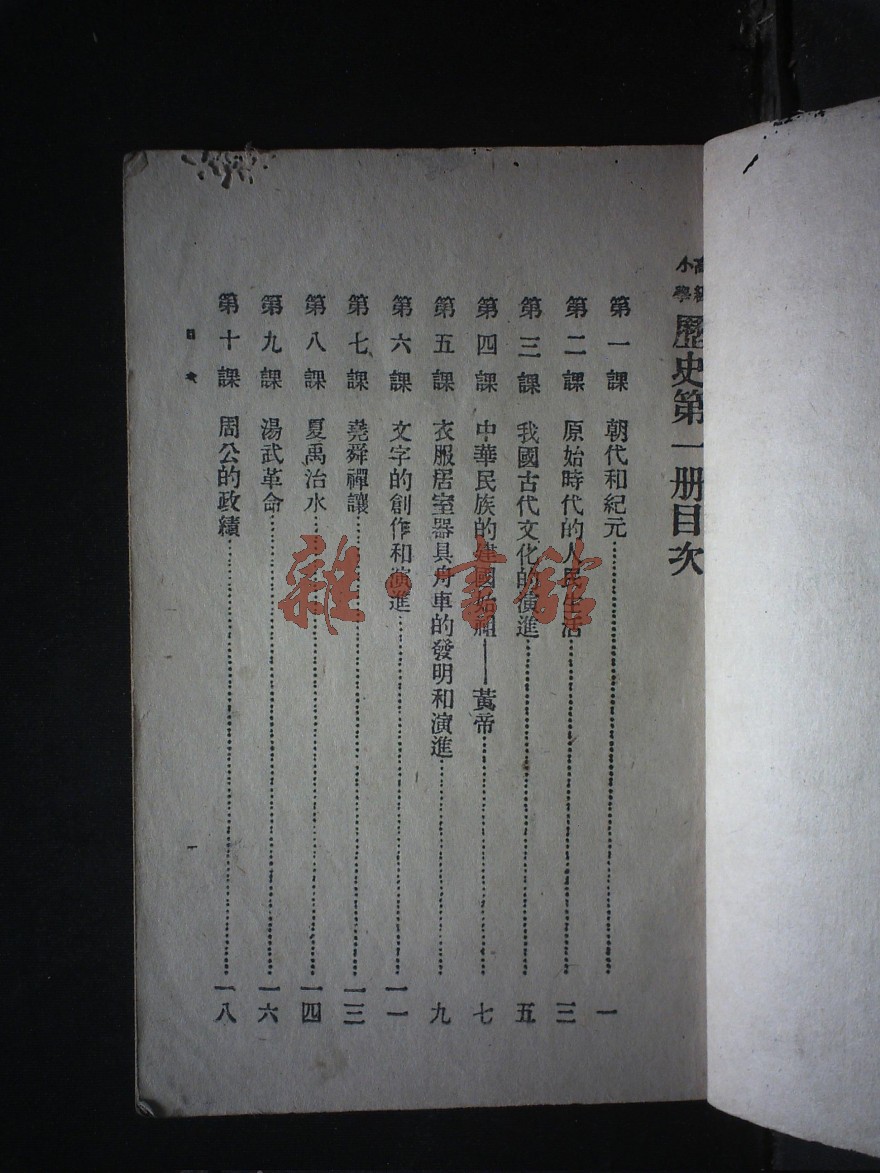 高級小學 歷史第一册目次
第一課 朝代和紀元 一
第二課 原始時代的人民生活 三
第三課 我國古代文化的演進 五
第四課 中華民族的建國始祖——黃帝 七
第五課 衣服居室器具舟車的發明和演進 九
第六課 文字的創作和演進 一一
第七課 堯舜禪讓 一三
第八課 夏禹治水 一四
第九課 湯武革命 一六
第十課 周公的政績 一八
目次 一
雜·書館